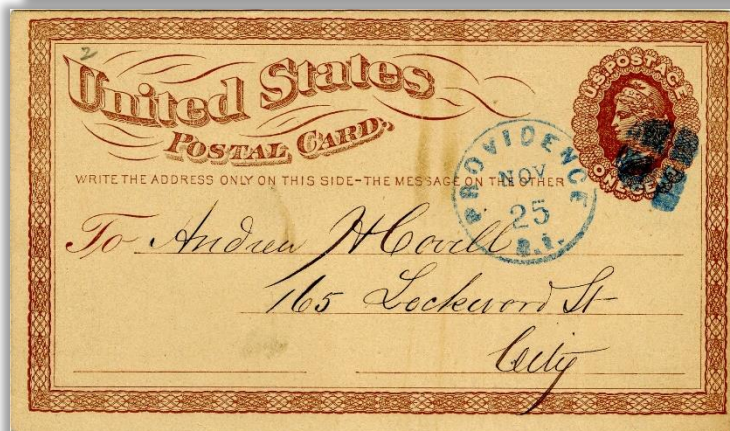 2
United States
POSTAL CARD.
U.S. POSTAGE
ONE CENT
WRITE THE ADDRESS ONLY ON THIS SIDE-THE MESSAGE ON THE OTHER
PROVIDENCE
NOV
25
R.I.
To Andrew H Covell
165 Lockwood St
City